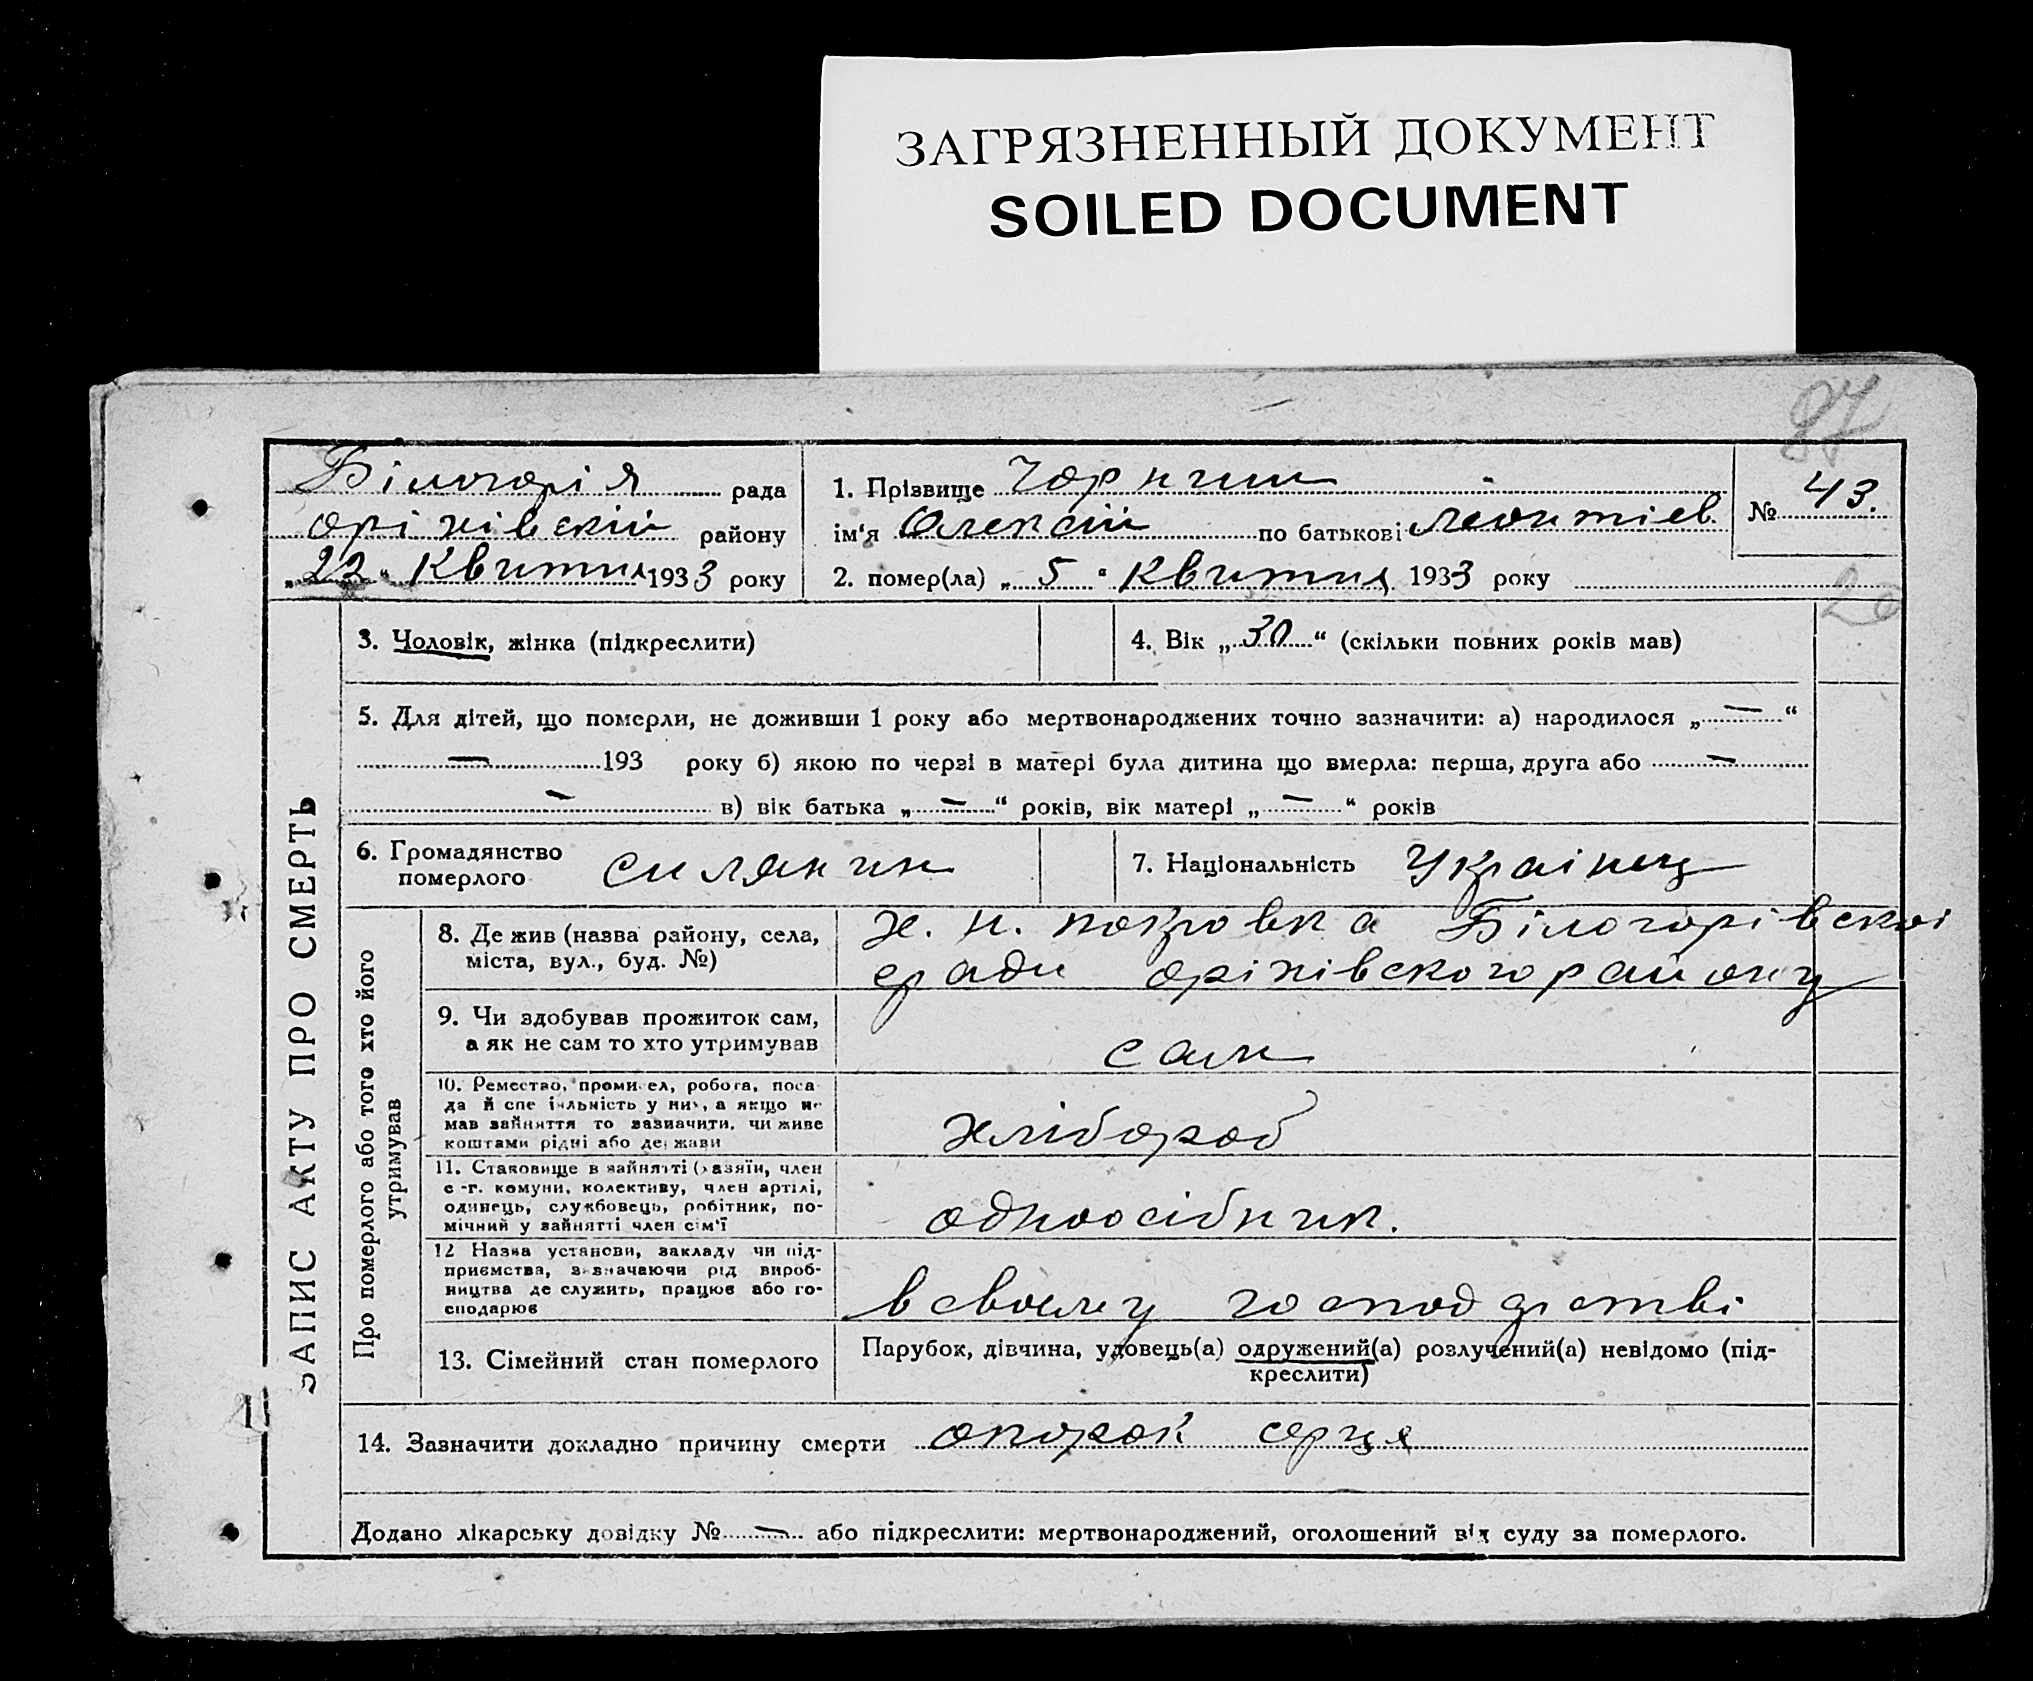 ЗАГРЯЗНЕННЫЙ ДОКУМЕНТ
SOILED DOCUMENT
87
Білогорія рада
оріхівский району
„22“ Квитня 1933 року
1. Прізвище Чорний
ім'я Олексій по батькові Леонтіев
2. помер(ла) „5“ Квитня 1933 року
№ 43.
20
ЗАПИС АКТУ ПРО СМЕРТЬ
3. Чоловік, жінка (підкреслити)
4. Вік „30“ (скільки повних років мав)
5. Для дітей, що померли, не доживши 1 року або мертвонароджених точно зазначити: а) народилося „—“
— 193 року б) якою по черзі в матері була дитина що вмерла: перша, друга або —
— в) вік батька „—“ років, вік матері „—“ років
6. Громадянство
померлого силянин
7. Національність Українец
Про померлого або того хто його
утримував
8. Де жив (назва району, села,
міста, вул., буд. №)
х. н. покровка Білогорівскоі
ради оріхівского району
9. Чи здобував прожиток сам,
а як не сам то хто утримував
сам
10. Ремество, промисел, робота, поса
да й спеціяльність у них, а якщо не
мав зайняття то зазначити, чи живе
коштами рідні або держави
хлібороб
11. Становище в зайнятті (хазяїн, член
с-г. комуни, колективу, член артілі,
одинець, службовець, робітник, по-
мічний у зайнятті член сім'ї
одноосібник.
12 Назва установи, закладу чи під-
приємства, зазначаючи рід вироб-
ництва де служить, працює або го-
сподарює
в своему господрстві
13. Сімейний стан померлого
Парубок, дівчина, удовець(а) одружений(а) розлучений(а) невідомо (під-
креслити)
14. Зазначити докладно причину смерти опорок серця
Додано лікарську довідку № — або підкреслити: мертвонароджений, оголошений від суду за померлого.